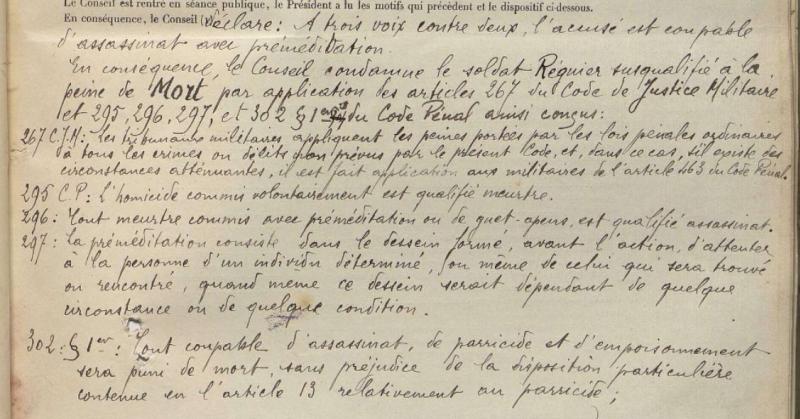 Le Conseil est rentré en séance publique, le Président a lu les motifs qui précèdent et le dispositif ci-dessous.
En conséquence, le Conseil (1) Déclare: A trois voix contre deux, l'accusé est coupable
d'assassinat avec préméditation.
En conséquence, le Conseil condamne le soldat Régnier susqualifié à la
peine de Mort par application des articles 267 du Code de Justice Militaire
et 295, 296, 297, et 302 § 1er du Code Pénal ainsi conçus:
267 C.J.M: Les tribunaux militaires appliquent les peines portées par les lois pénales ordinaires
à tous les crimes ou délits non prévus par le présent Code, et, dans ce cas, s'il existe des
circonstances atténuantes, il est fait application aux militaires de l'article 463 du Code Pénal.
295 C.P: L'homicide commis volontairement est qualifié meurtre.
296: Tout meurtre commis avec préméditation ou de guet-apens, est qualifié assassinat.
297: La préméditation consiste dans le dessein formé, avant l'action, d'attenter
à la personne d'un individu déterminé, ou même de celui qui sera trouvé
ou rencontré, quand même ce dessein serait dépendant de quelque
circonstance ou de quelque condition.
302: § 1er: Tout coupable d'assassinat, de parricide et d'empoisonnement
sera puni de mort, sans préjudice de la disposition particulière
contenue en l'article 13 relativement au parricide;